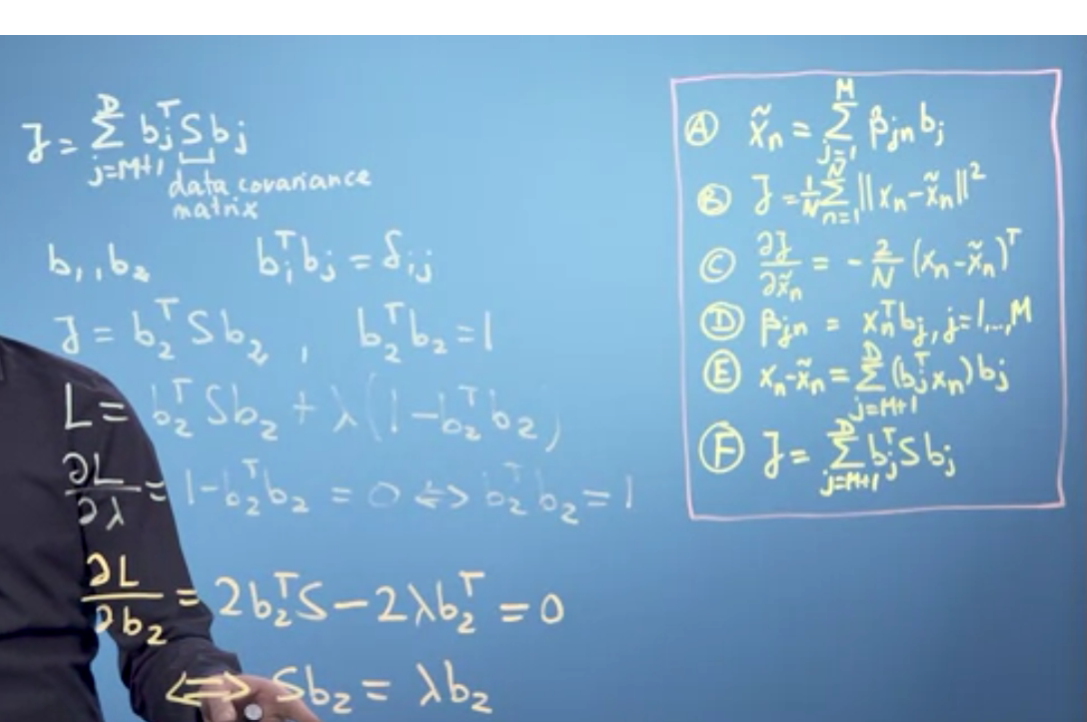 J = ∑_{j=M+1}^{D} b_j^T S b_j
data covariance
matrix
b_1, b_2   b_i^T b_j = δ_{ij}
J = b_2^T S b_2 , b_2^T b_2 = 1
L = b_2^T S b_2 + λ(1 - b_2^T b_2)
∂L/∂λ = 1 - b_2^T b_2 = 0 ⟺ b_2^T b_2 = 1
∂L/∂b_2 = 2b_2^T S - 2λb_2^T = 0
⟺ Sb_2 = λb_2
Ⓐ x̃_n = ∑_{j=1}^{M} β_{jn} b_j
Ⓑ J = 1/N ∑_{n=1}^{N} ||x_n - x̃_n||^2
Ⓒ ∂J/∂x̃_n = - 2/N (x_n - x̃_n)^T
Ⓓ β_{jn} = x_n^T b_j, j=1,..,M
Ⓔ x_n - x̃_n = ∑_{j=M+1}^{D} (b_j^T x_n) b_j
Ⓕ J = ∑_{j=M+1}^{D} b_j^T S b_j